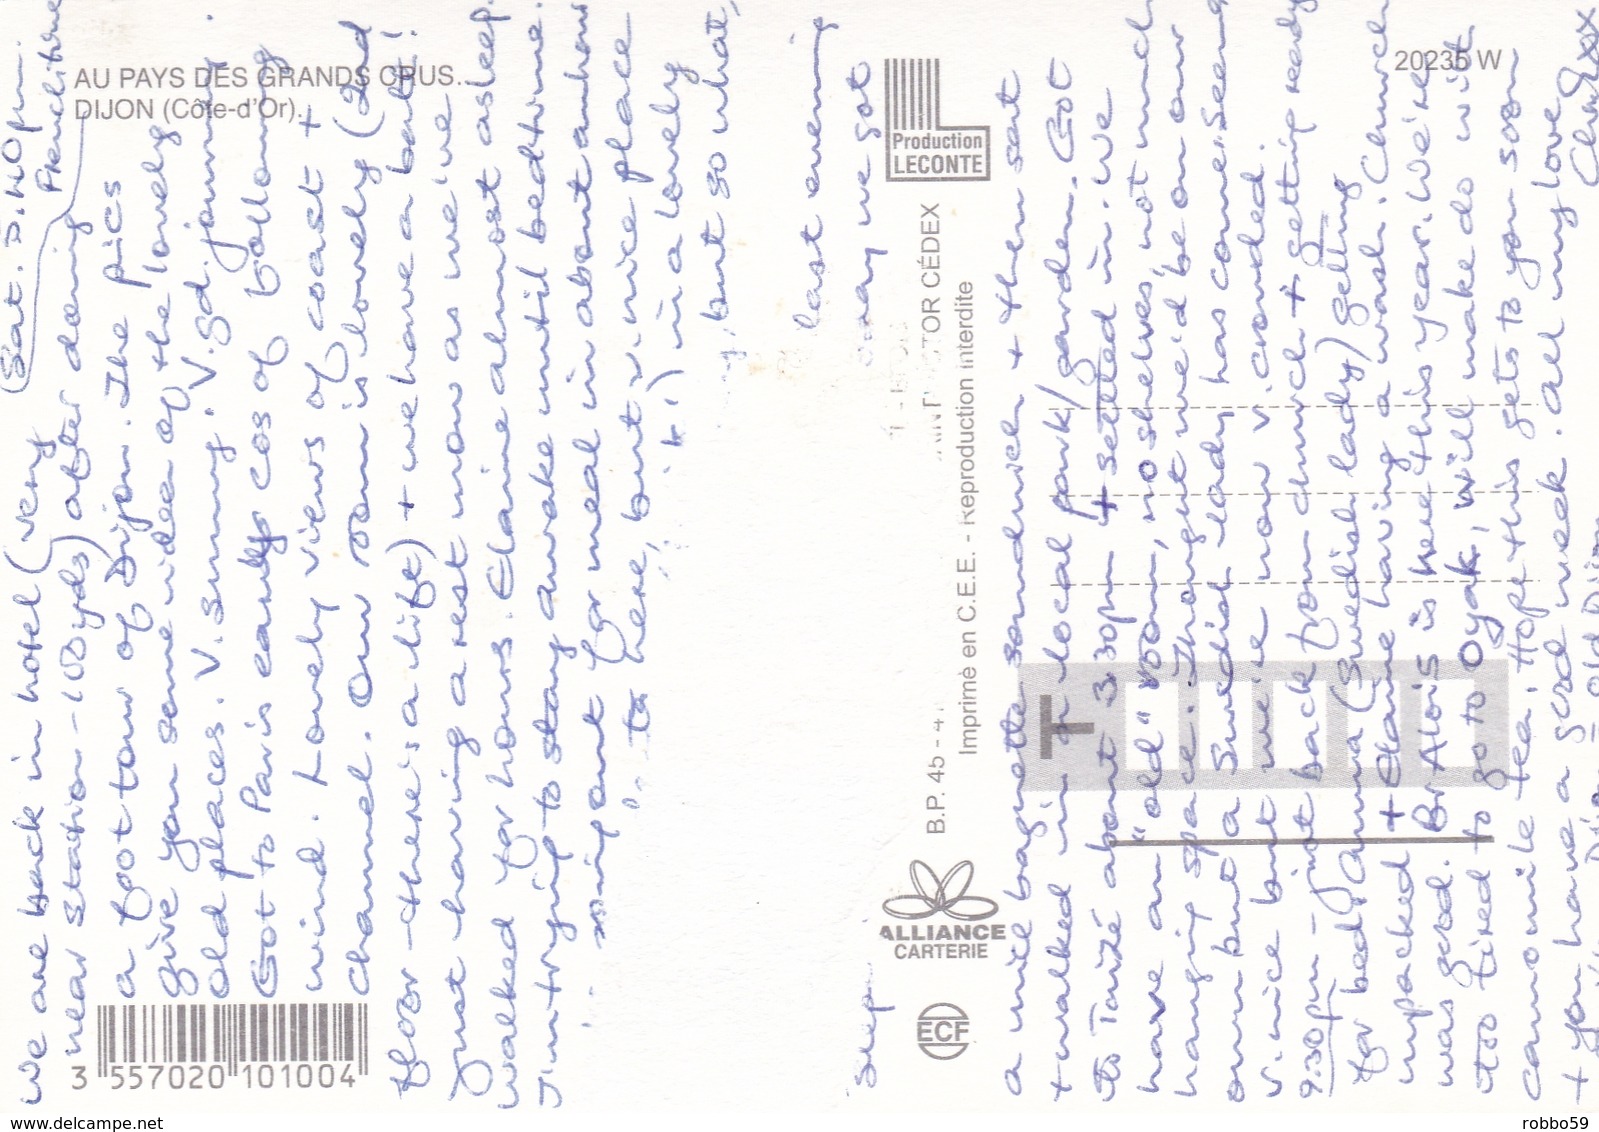 AU PAYS DES GRANDS CRUS...
DIJON (Côte-d'Or).
20235 W
(Sat. 5.40pm
Frenchtime
We are back in hotel (very
near station - 100yds) after doing
a foot tour of Dijon. The pics
give you some idea of the lovely
old places. V. sunny. V. gd. journey.
Got to Paris early cos of following
wind. Lovely views of coast +
Channel. Our room is lovely (2nd
floor - there's a lift) + we have a bath!
Just having a rest now as we've
walked for hours. Elaine almost asleep.
I'm trying to stay awake until bedtime.
going out for meal in about an hour
to here, but v. nice place
in a lovely
, but so what,
last evening
way we got
Production
LECONTE
CÉDEX
B.P. 45 - 4
Imprimé en C.E.E. - Reproduction interdite
ALLIANCE
CARTERIE
ECF
3 557020 101004
T
a with baguette sandwich + then sat
+ walked in local park/garden. Got
to Taizé about 3.30pm + settled in. We
have an "old" room, no shelves, not much
hanging space. Thought we'd be on our
own but a Swedish lady has come. Seems
v. nice but we're now v. crowded.
9.30pm - just back from church + getting ready
for bed. Anna (Swedish lady) getting
unpacked + Elaine having a wash. Church
was good. Br Alois is here this year. We're
too tired to go to Oyak, will make do wit
camomile tea. Hope this gets to you soon
+ you have a good week. All my love
Chrisxx
we are on delcampe.net
robbo59